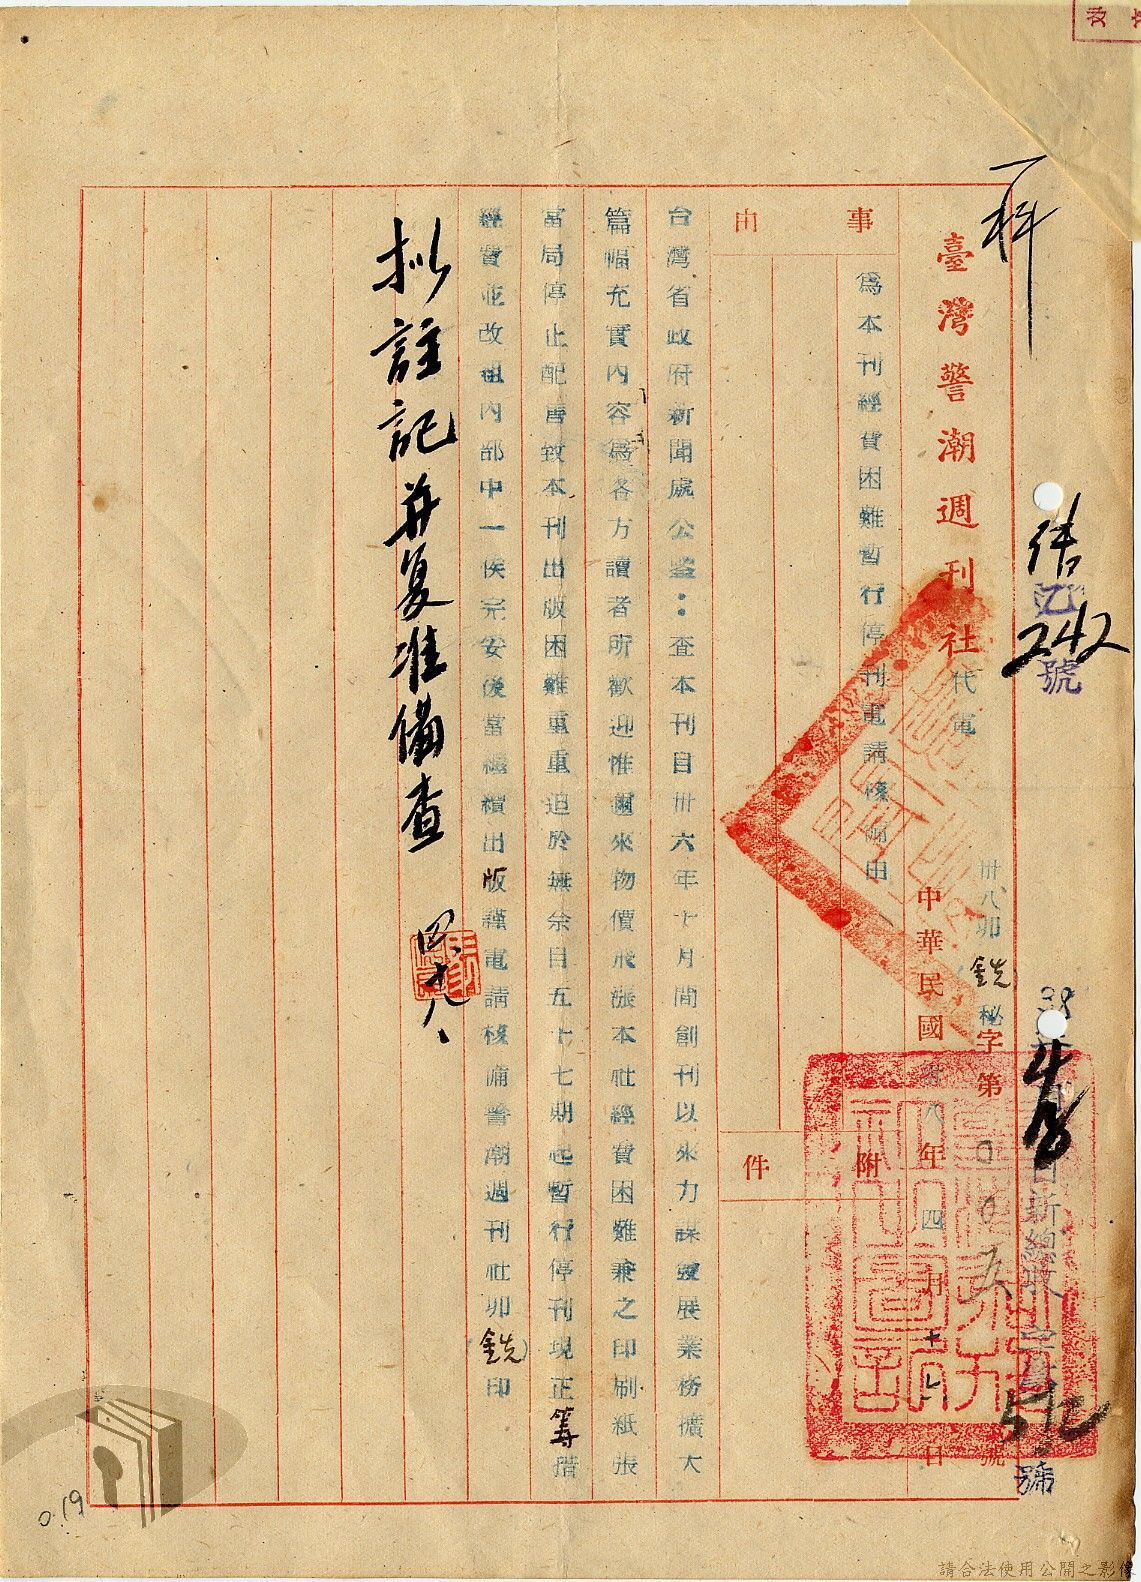 一科
信
242
號
38
4
日新總收
字第
512
號
臺灣警潮週刊社代電
卅八卯銑秘字第005號
中華民國卅八年四月十七日
事由
為本刊經費困難暫行停刊電請條備由
附件
台灣省政府新聞處公鑒：查本刊自卅六年十月間創刊以來力謀發展業務擴大
篇幅充實內容為各方讀者所歡迎惟邇來物價飛漲本社經費困難兼之印刷紙張
當局停止配售致本刊出版困難重重迫於無奈自五十七期起暫行停刊現正籌措
經費並改組內部中一俟完妥後當繼續出版謹電請核備警潮週刊社卯銑印
擬註記并复准備查
四、十八、
0.19
請合法使用公開之影像